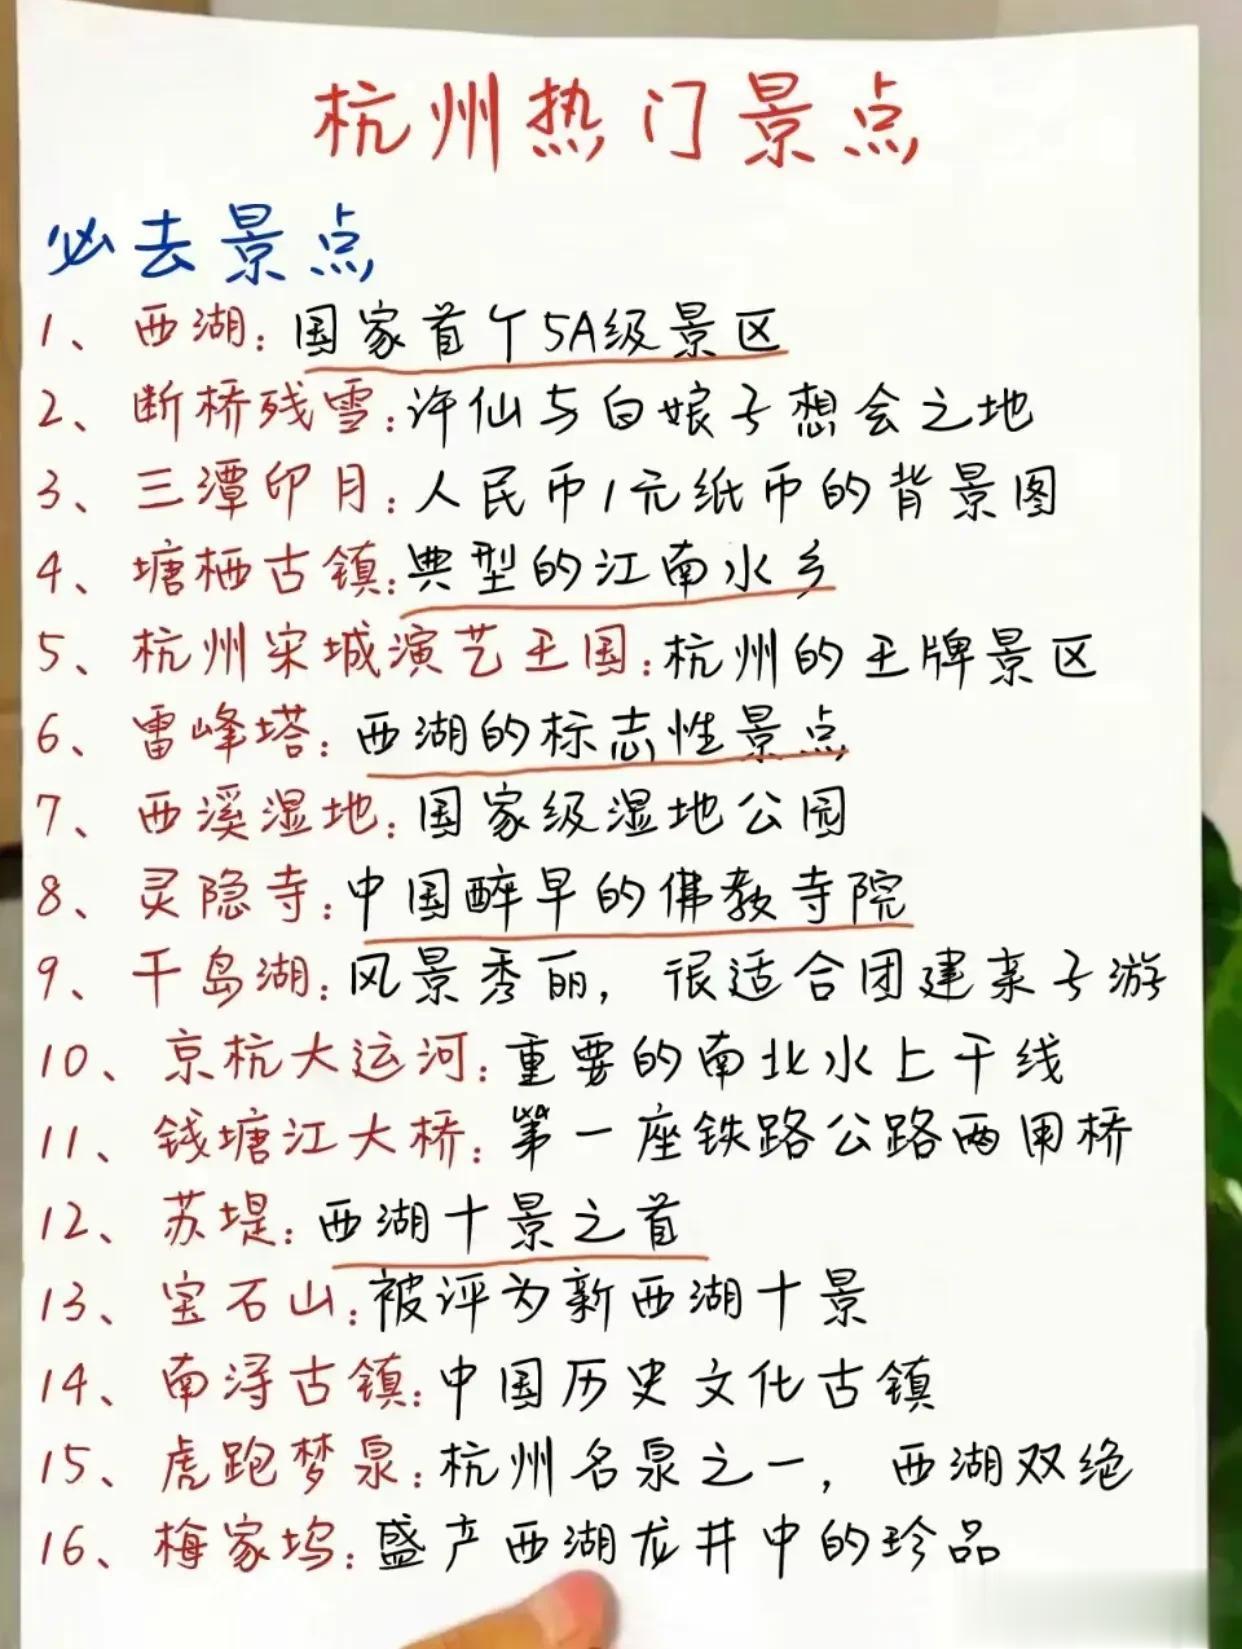 杭州热门景点
必去景点
1、西湖：国家首个5A级景区
2、断桥残雪：许仙与白娘子想会之地
3、三潭卯月：人民币1元纸币的背景图
4、塘栖古镇：典型的江南水乡
5、杭州宋城演艺王国：杭州的王牌景区
6、雷峰塔：西湖的标志性景点
7、西溪湿地：国家级湿地公园
8、灵隐寺：中国醉早的佛教寺院
9、千岛湖：风景秀丽，很适合团建亲子游
10、京杭大运河：重要的南北水上干线
11、钱塘江大桥：第一座铁路公路两用桥
12、苏堤：西湖十景之首
13、宝石山：被评为新西湖十景
14、南浔古镇：中国历史文化古镇
15、虎跑梦泉：杭州名泉之一，西湖双绝
16、梅家坞：盛产西湖龙井中的珍品